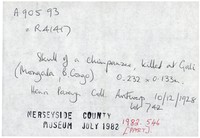 A 90593
R4(41)
Skull of a chimpanzee, killed at Gabi
(Mongala, Congo). 0.232 × 0.133m
Henri Pareyn Coll. Antwerp 10/12/1928
Lot 742
MERSEYSIDE COUNTY
MUSEUM JULY 1982
1983.546
(PART)